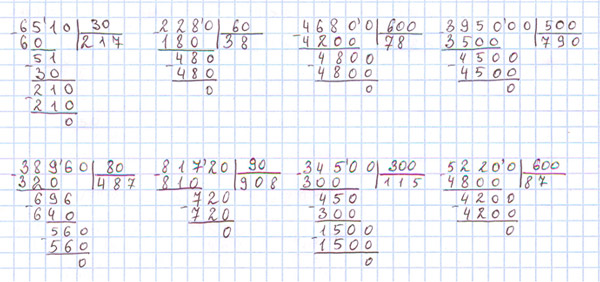 -65'10 | 30
60 | 217
-51
30
-210
210
0
-228'0 | 60
180 | 38
-480
480
0
-4680'0 | 600
4200 | 78
-4800
4800
0
-3950'00 | 500
3500 | 790
-4500
4500
0
-389'60 | 80
320 | 487
-696
640
-560
560
0
-817'20 | 90
810 | 908
-720
720
0
-345'00 | 300
300 | 115
-450
300
-1500
1500
0
-5220'0 | 600
4800 | 87
-4200
4200
0